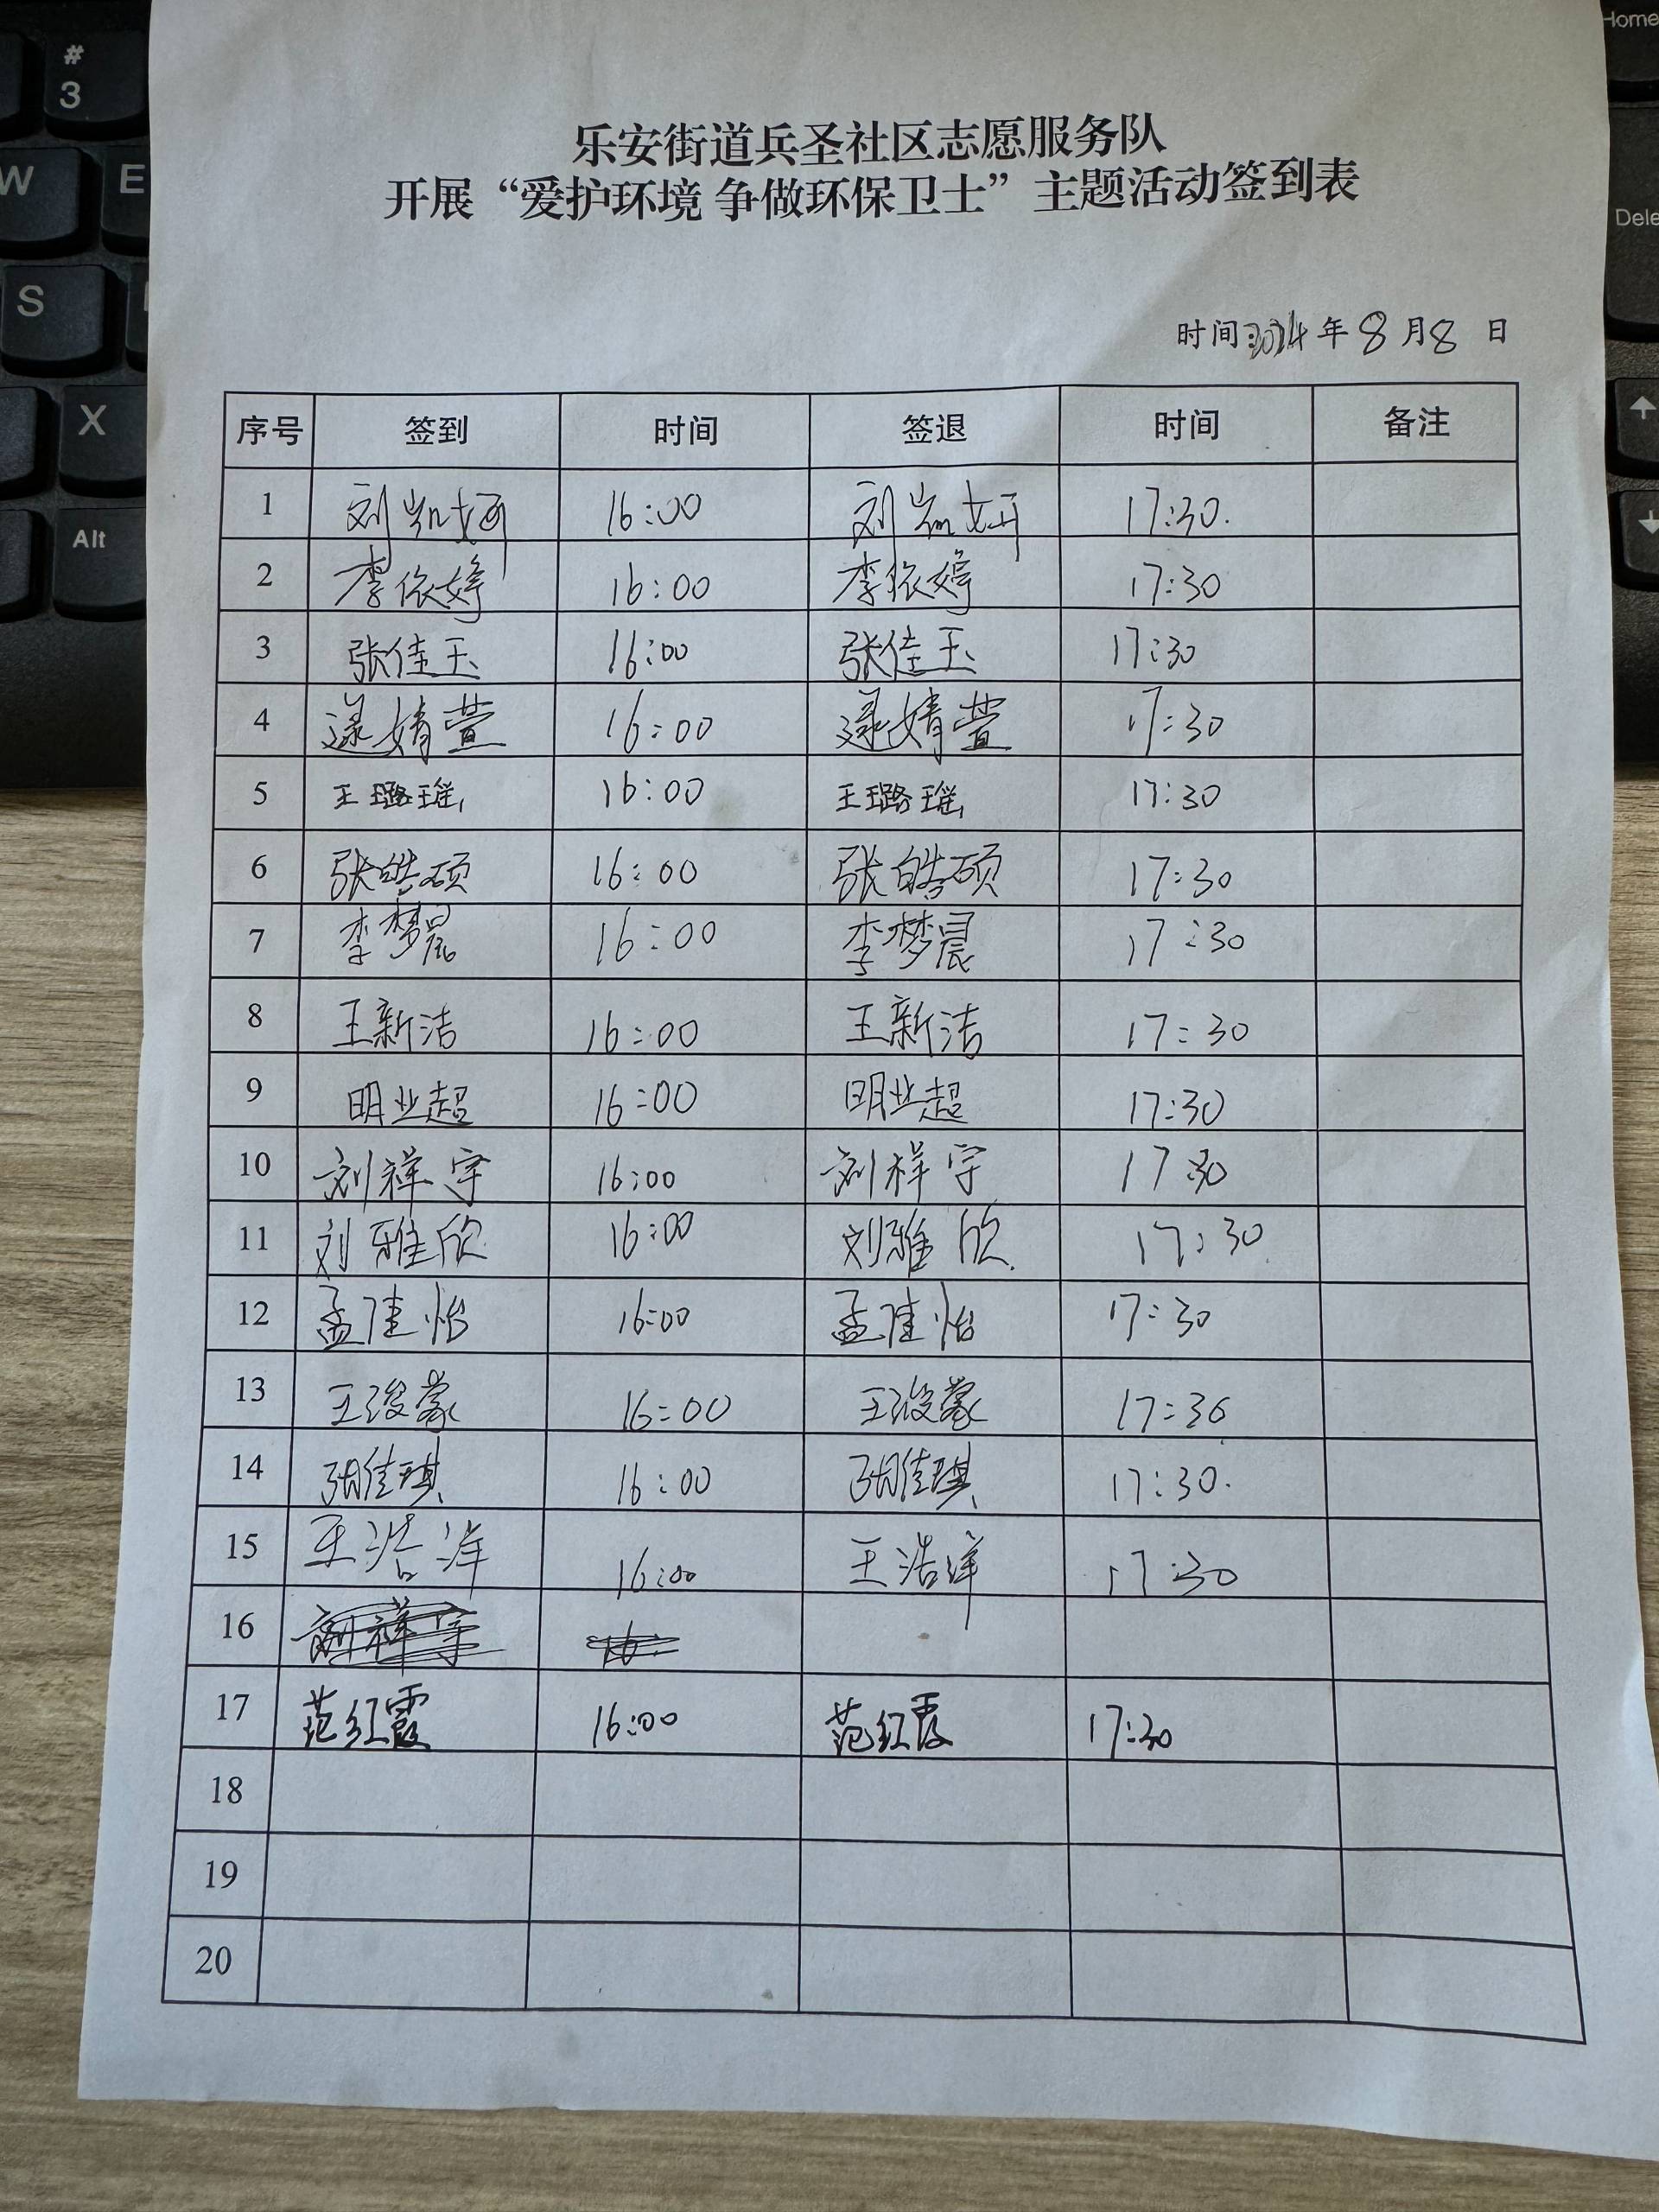 # 3
W E
S
X
Alt
Home
乐安街道兵圣社区志愿服务队
开展“爱护环境 争做环保卫士”主题活动签到表
时间:2024年8月8日
序号 签到 时间 签退 时间 备注
1 刘 16:00 刘 17:30.
2 李依婷 16:00 李依婷 17:30
3 张佳玉 16:00 张佳玉 17:30
4 逯婧萱 16:00 逯婧萱 17:30
5 王璐瑶 16:00 王璐瑶 17:30
6 张皓硕 16:00 张皓硕 17:30
7 李梦晨 16:00 李梦晨 17:30
8 王新洁 16:00 王新洁 17:30
9 明业超 16:00 明业超 17:30
10 刘祥宇 16:00 刘祥宇 17:30
11 刘雅欣 16:00 刘雅欣 17:30
12 孟佳怡 16:00 孟佳怡 17:30
13 王浚豪 16:00 王浚豪 17:30
14 胡佳琪 16:00 胡佳琪 17:30.
15 王浩洋 16:00 王浩洋 17:30
16 刘祥宇 16:
17 范红霞 16:00 范红霞 17:30
18
19
20